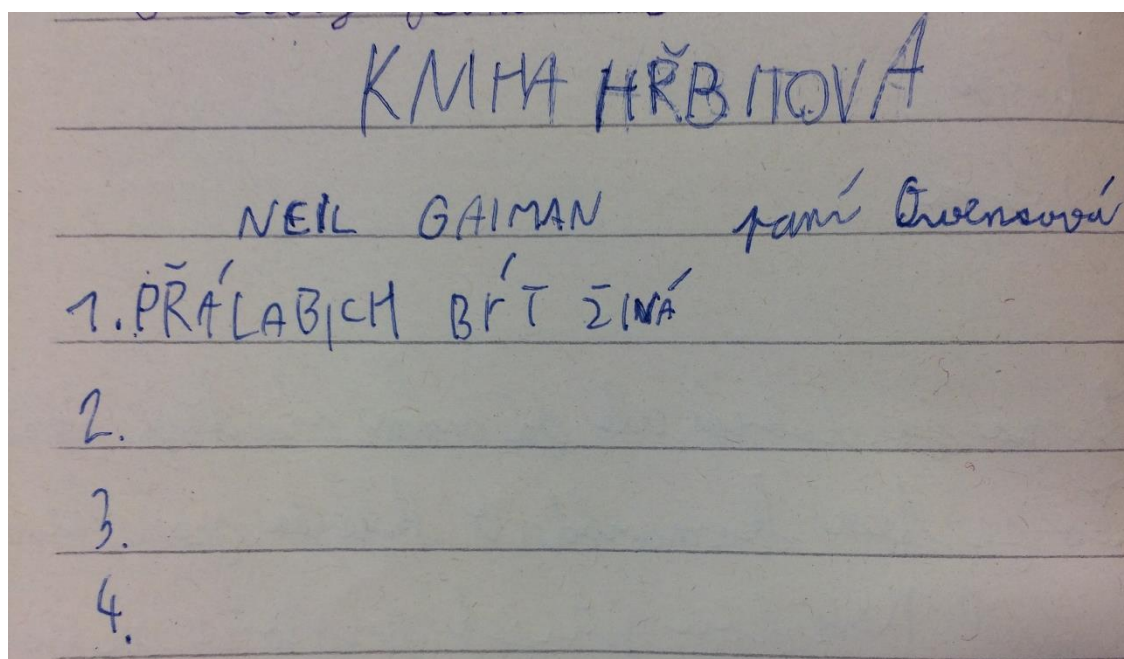 KNIHA HŘBITOVA
NEIL GAIMAN paní Owensová
1. PŘÁLABICH BÝT ŽINÁ
2.
3.
4.